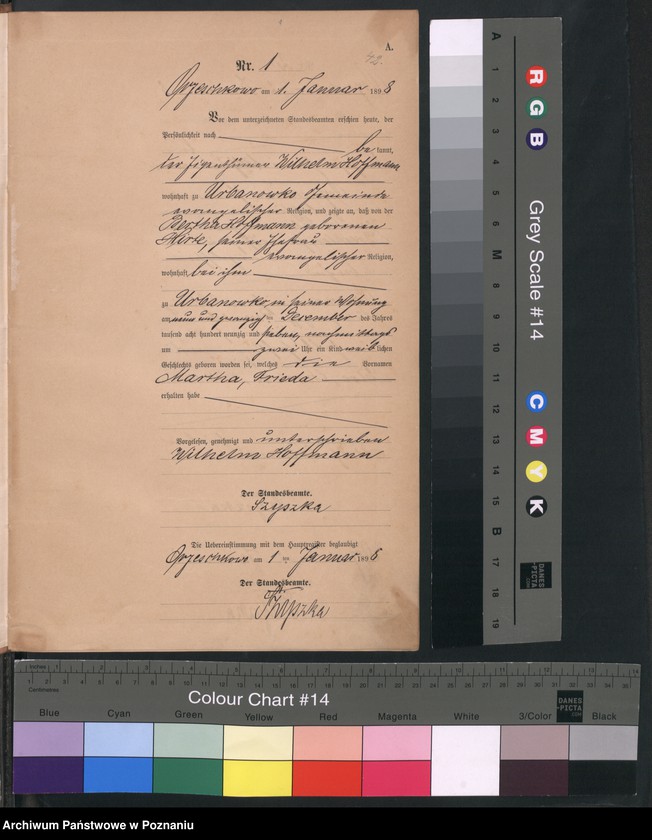 A.
42.
Nr. 1
Orzeschkowo am 1. Januar 1898
Vor dem unterzeichneten Standesbeamten erschien heute, der
Persönlichkeit nach
be kannt,
der Eigenthümer Wilhelm Hoffmann
wohnhaft zu Urbanowko Gemeinde
evangelischer Religion, und zeigte an, daß von der
Bertha Hoffmann geborenen
Hirte, seiner Ehefrau
evangelischer Religion,
wohnhaft bei ihm
zu Urbanowko, in seiner Wohnung
am neun und zwanzigsten Dezember des Jahres
tausend acht hundert neunzig und sieben, nachmittags
um zwei Uhr ein Kind weiblichen
Geschlechts geboren worden sei, welches die Vornamen
Martha, Frieda
erhalten habe
Vorgelesen, genehmigt und unterschrieben
Wilhelm Hoffmann
Der Standesbeamte.
Szyszka
Die Uebereinstimmung mit dem Hauptregister beglaubigt
Orzeschkowo am 1 ten Januar 1898
Der Standesbeamte.
Szyszka
A 1 2 3 4 5 6 M 8 9 10 11 12 13 14 15 B 17 18 19
R G B
Grey Scale #14
C M Y K
DANES
PICTA
.COM
Inches 1 2 3 4 5 6 7 8 9 10 11 12 13 14
Centimetres
Colour Chart #14
DANES
PICTA
.COM
Blue Cyan Green Yellow Red Magenta White 3/Color Black
Archiwum Państwowe w Poznaniu